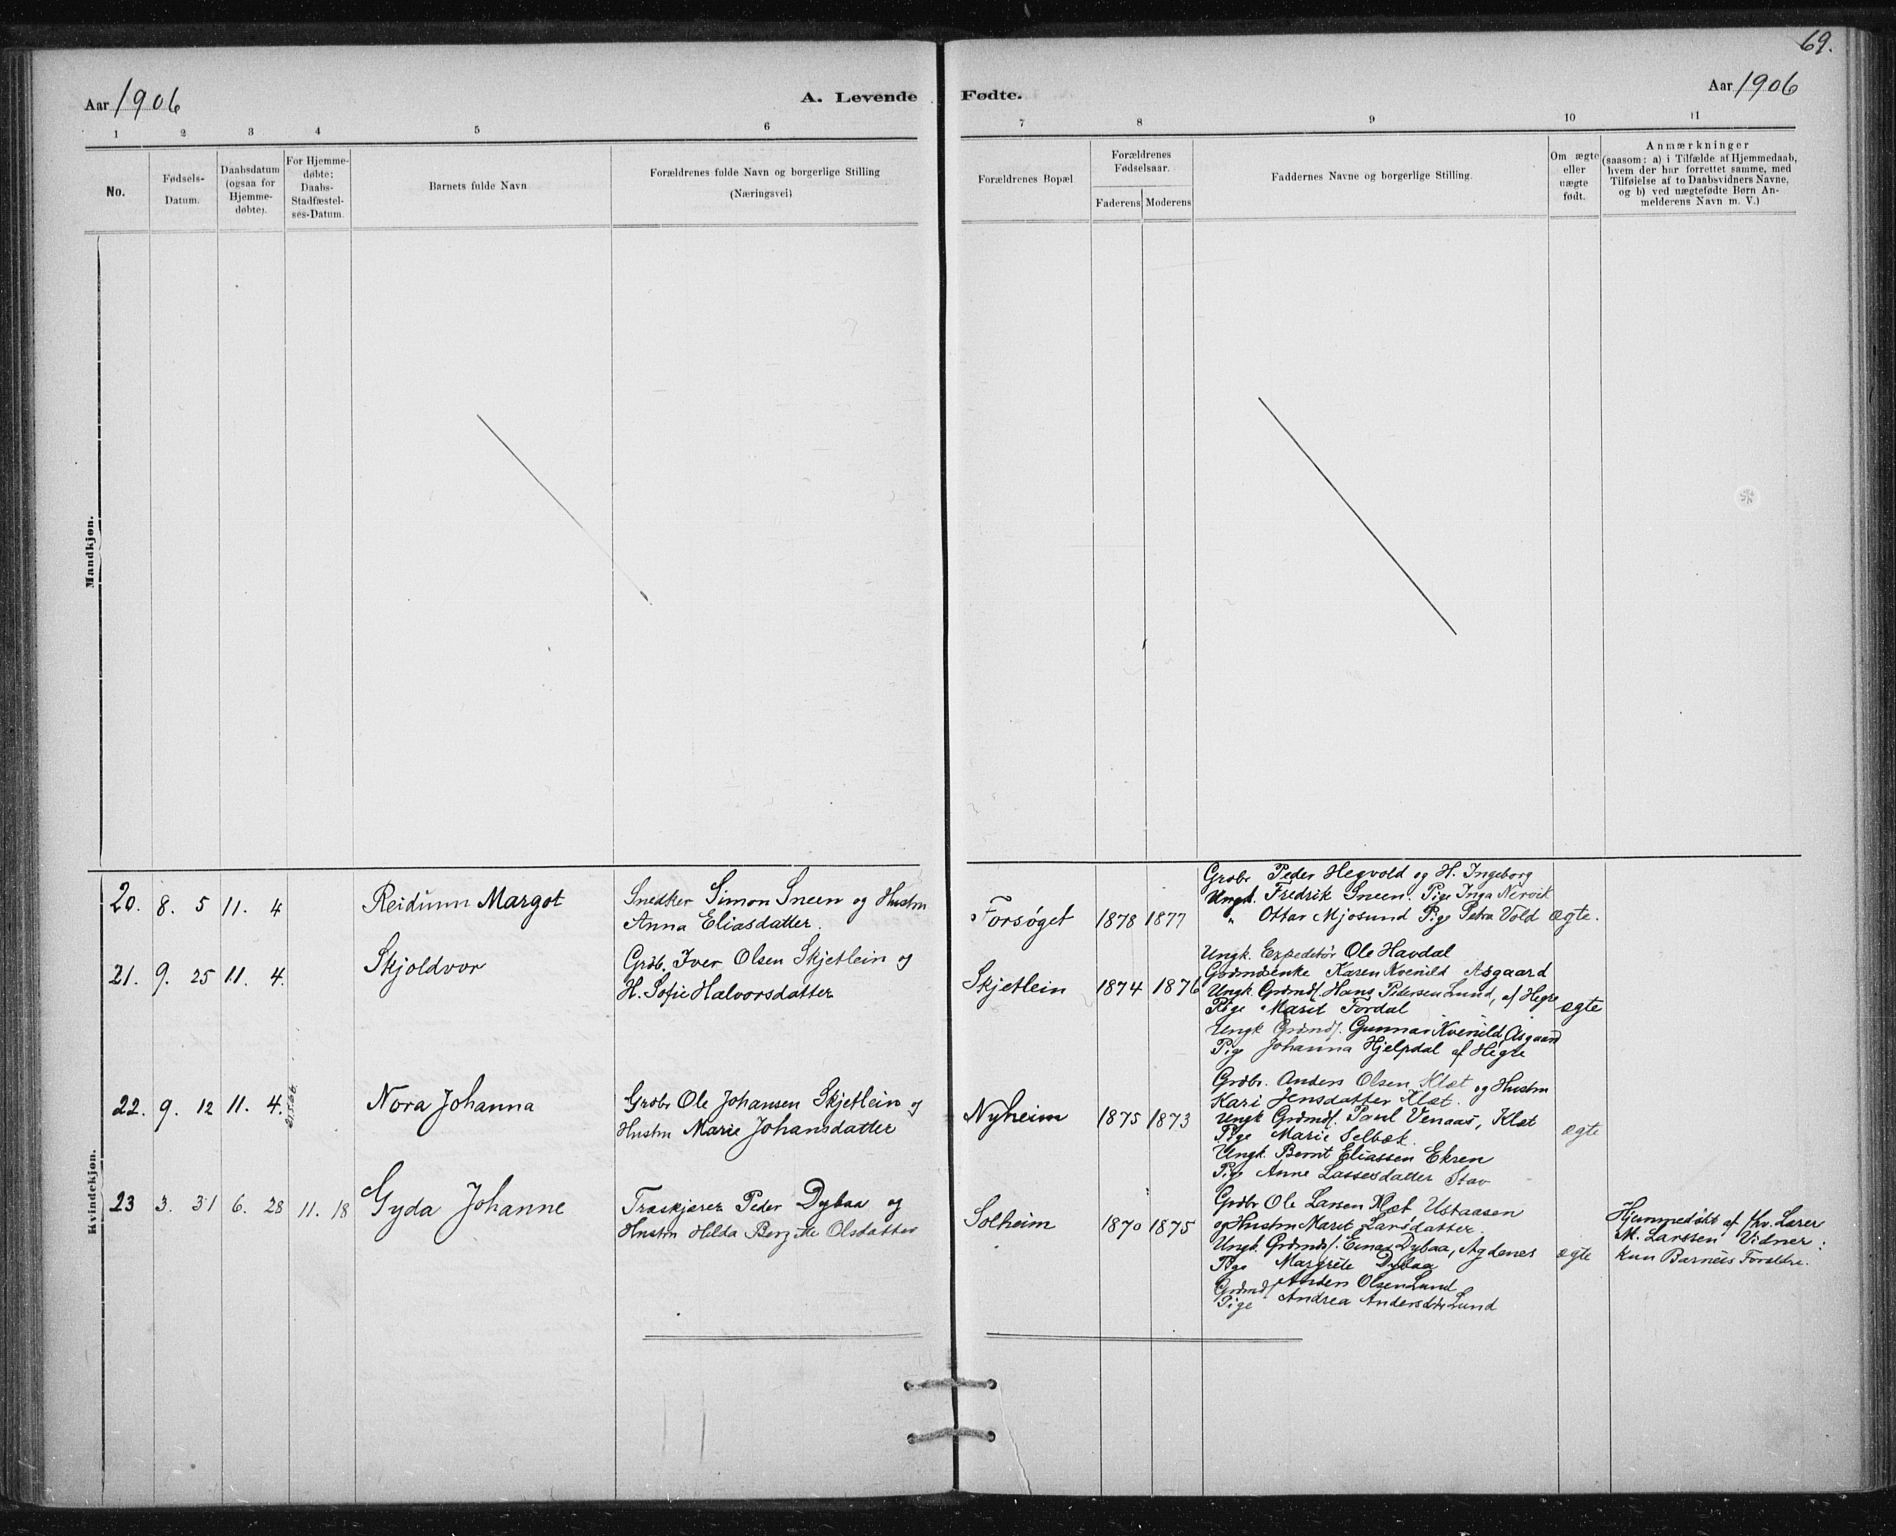 69.
Aar 1906
A. Levende Fødte.
Aar 1906
1 2 3 4 5 6 7 8 9 10 11
No.
Fødsels-
Datum.
Daabsdatum
(ogsaa for
Hjemme-
døbte).
For Hjemme-
døbte:
Daabs-
Stadfæstel-
ses-Datum.
Barnets fulde Navn
Forældrenes fulde Navn og borgerlige Stilling
(Næringsvei)
Forældrenes Bopæl
Forældrenes
Fødselsaar.
Faderens Moderens
Faddernes Navne og borgerlige Stilling.
Om ægte
eller
uægte
født.
Anmærkninger
(saasom: a) i Tilfælde af Hjemmedaab,
hvem der har forrettet samme, med
Tilføielse af to Daabsvidners Navne,
og b) ved uægtefødte Børn An-
melderens Navn m. V.)
Mandkjøn.
Kvindekjøn.
20. 8. 5 11. 4
Reidunn Margot
Snedker Simon Sneen og Hustru
Anna Eliasdatter.
Forsøget 1878 1877
Grøbr Peder Hegvold og H. Ingeborg
Ungk. Fredrik Sneen. Pige Inga Nervik
" Ottar Mjosund Pige Petra Vold
ægte.
21. 9. 25 11. 4.
Skjoldvor
Grøb. Iver Olsen Skjetlein og
H. Sofie Halvorsdatter
Skjetlein 1874 1876
Ungk. Expeditør Ole Havdal
Gaardmdenke Karen Kvenild Asgaard
Ungk. Grdmds. Hans Pedersen Lund, af Hegre
Pige Marit Fordal
Ungk Grdmds. Gunnar Kvenild, Asgaard
Pige Johanna Hjelpdal af Hegre
ægte
22. 9. 12 11. 4.
Nora Johanna
Grøbr Ole Johansen Skjetlein og
Hustru Marie Johansdatter
Nyheim 1875 1873
Grøbr. Anders Olsen Klæt og Hustru
Kari Jensdatter Klæt.
Ungk Grdmds. Paul Venaas, Klæt
Pige Marie Selbæk.
Ungk. Bernt Eliassen Ekren
Pige Anne Lassesdatter Stav
ægte
23 3. 31 6. 28 11. 18
Gyda Johanne
Træskjærer Peder Dybaa og
Hustru Hilda Bergitte Olsdatter
Solheim 1870 1875
Grøbr Ole Larsen Klæt Ustaasen
og Hustru Marit Larsdatter.
Ungk. Grdmds. Einar Dybaa, Agdenes
Pige Margrete Dybaa
Grdmds Anders Olsen Lund
Pige Andrea Andersdtr Lund
ægte
Hjemmedøbt af fhv. Lærer
M. Larssen Vidner:
kun Barnets Forældre.